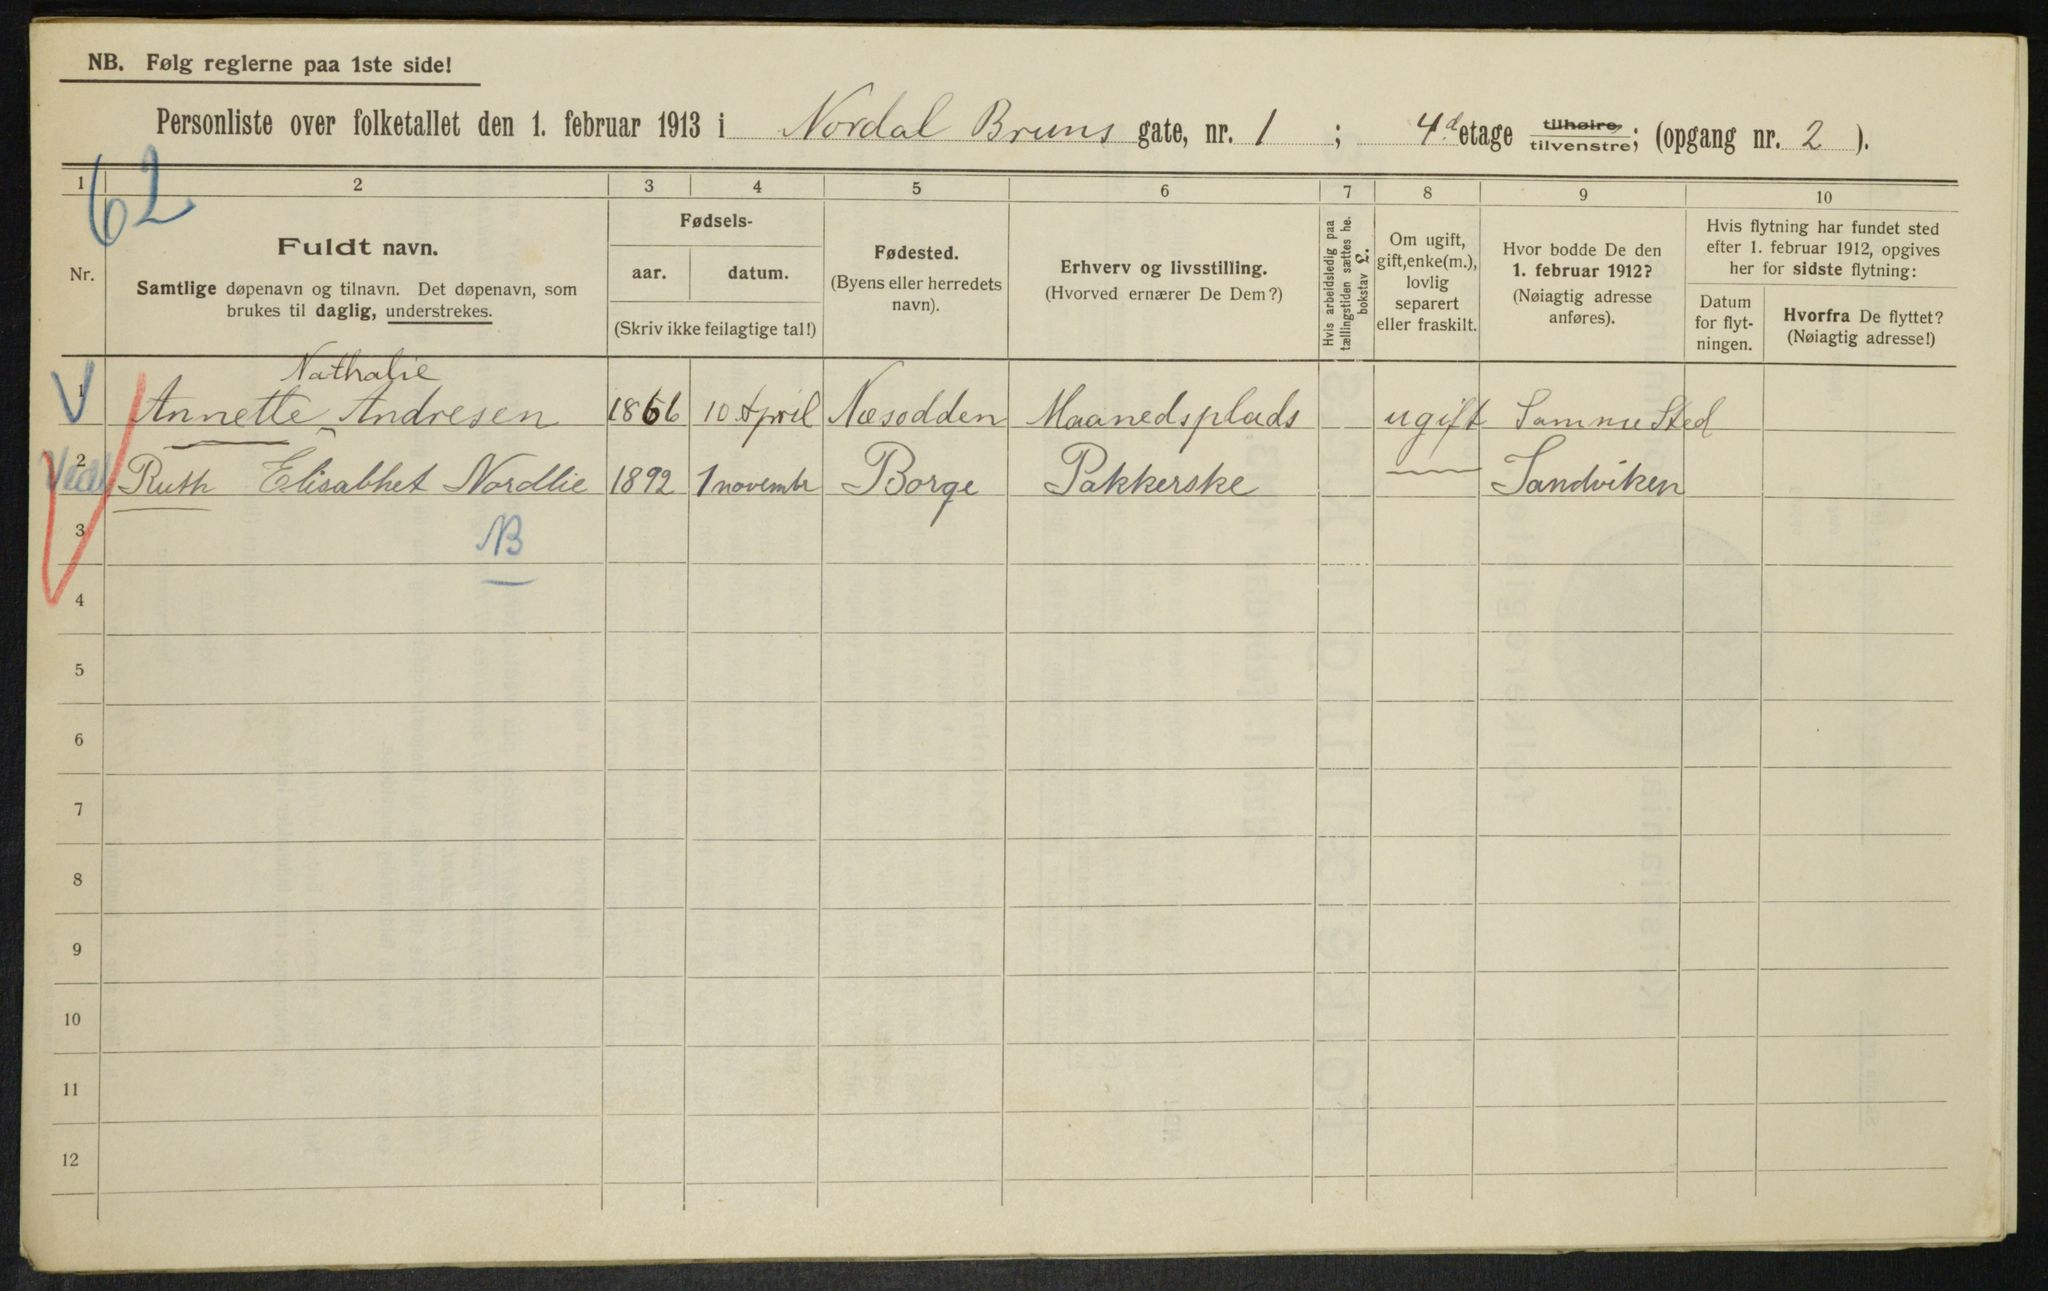 NB. Følg reglerne paa 1ste side!
Personliste over folketallet den 1. februar 1913 i Nordal Bruns gate, nr. 1 ; 4d etage tilhøire tilvenstre; (opgang nr. 2 ).
1 2 3 4 5 6 7 8 9 10
62
Nr.
Fuldt navn.
Samtlige døpenavn og tilnavn. Det døpenavn, som
brukes til daglig, understrekes.
Fødsels-
aar. datum.
(Skriv ikke feilagtige tal!)
Fødested.
(Byens eller herredets
navn).
Erhverv og livsstilling.
(Hvorved ernærer De Dem?)
Hvis arbeidsledig paa
tællingstiden sættes he.
bokstav L.
Om ugift,
gift, enke(m.),
lovlig
separert
eller fraskilt.
Hvor bodde De den
1. februar 1912?
(Nøiagtig adresse
anføres).
Hvis flytning har fundet sted
efter 1. februar 1912, opgives
her for sidste flytning:
Datum
for flyt-
ningen.
Hvorfra De flyttet?
(Nøiagtig adresse!)
Nathalie
1 Annette Andresen 1866 10 April Næsodden Maanedsplads ugift Samme Sted
2 Ruth Elisabhet Nordlie 1892 1 novembr Borge Pakkerske — Sandviken
3
NB
4
5
6
7
8
9
10
11
12